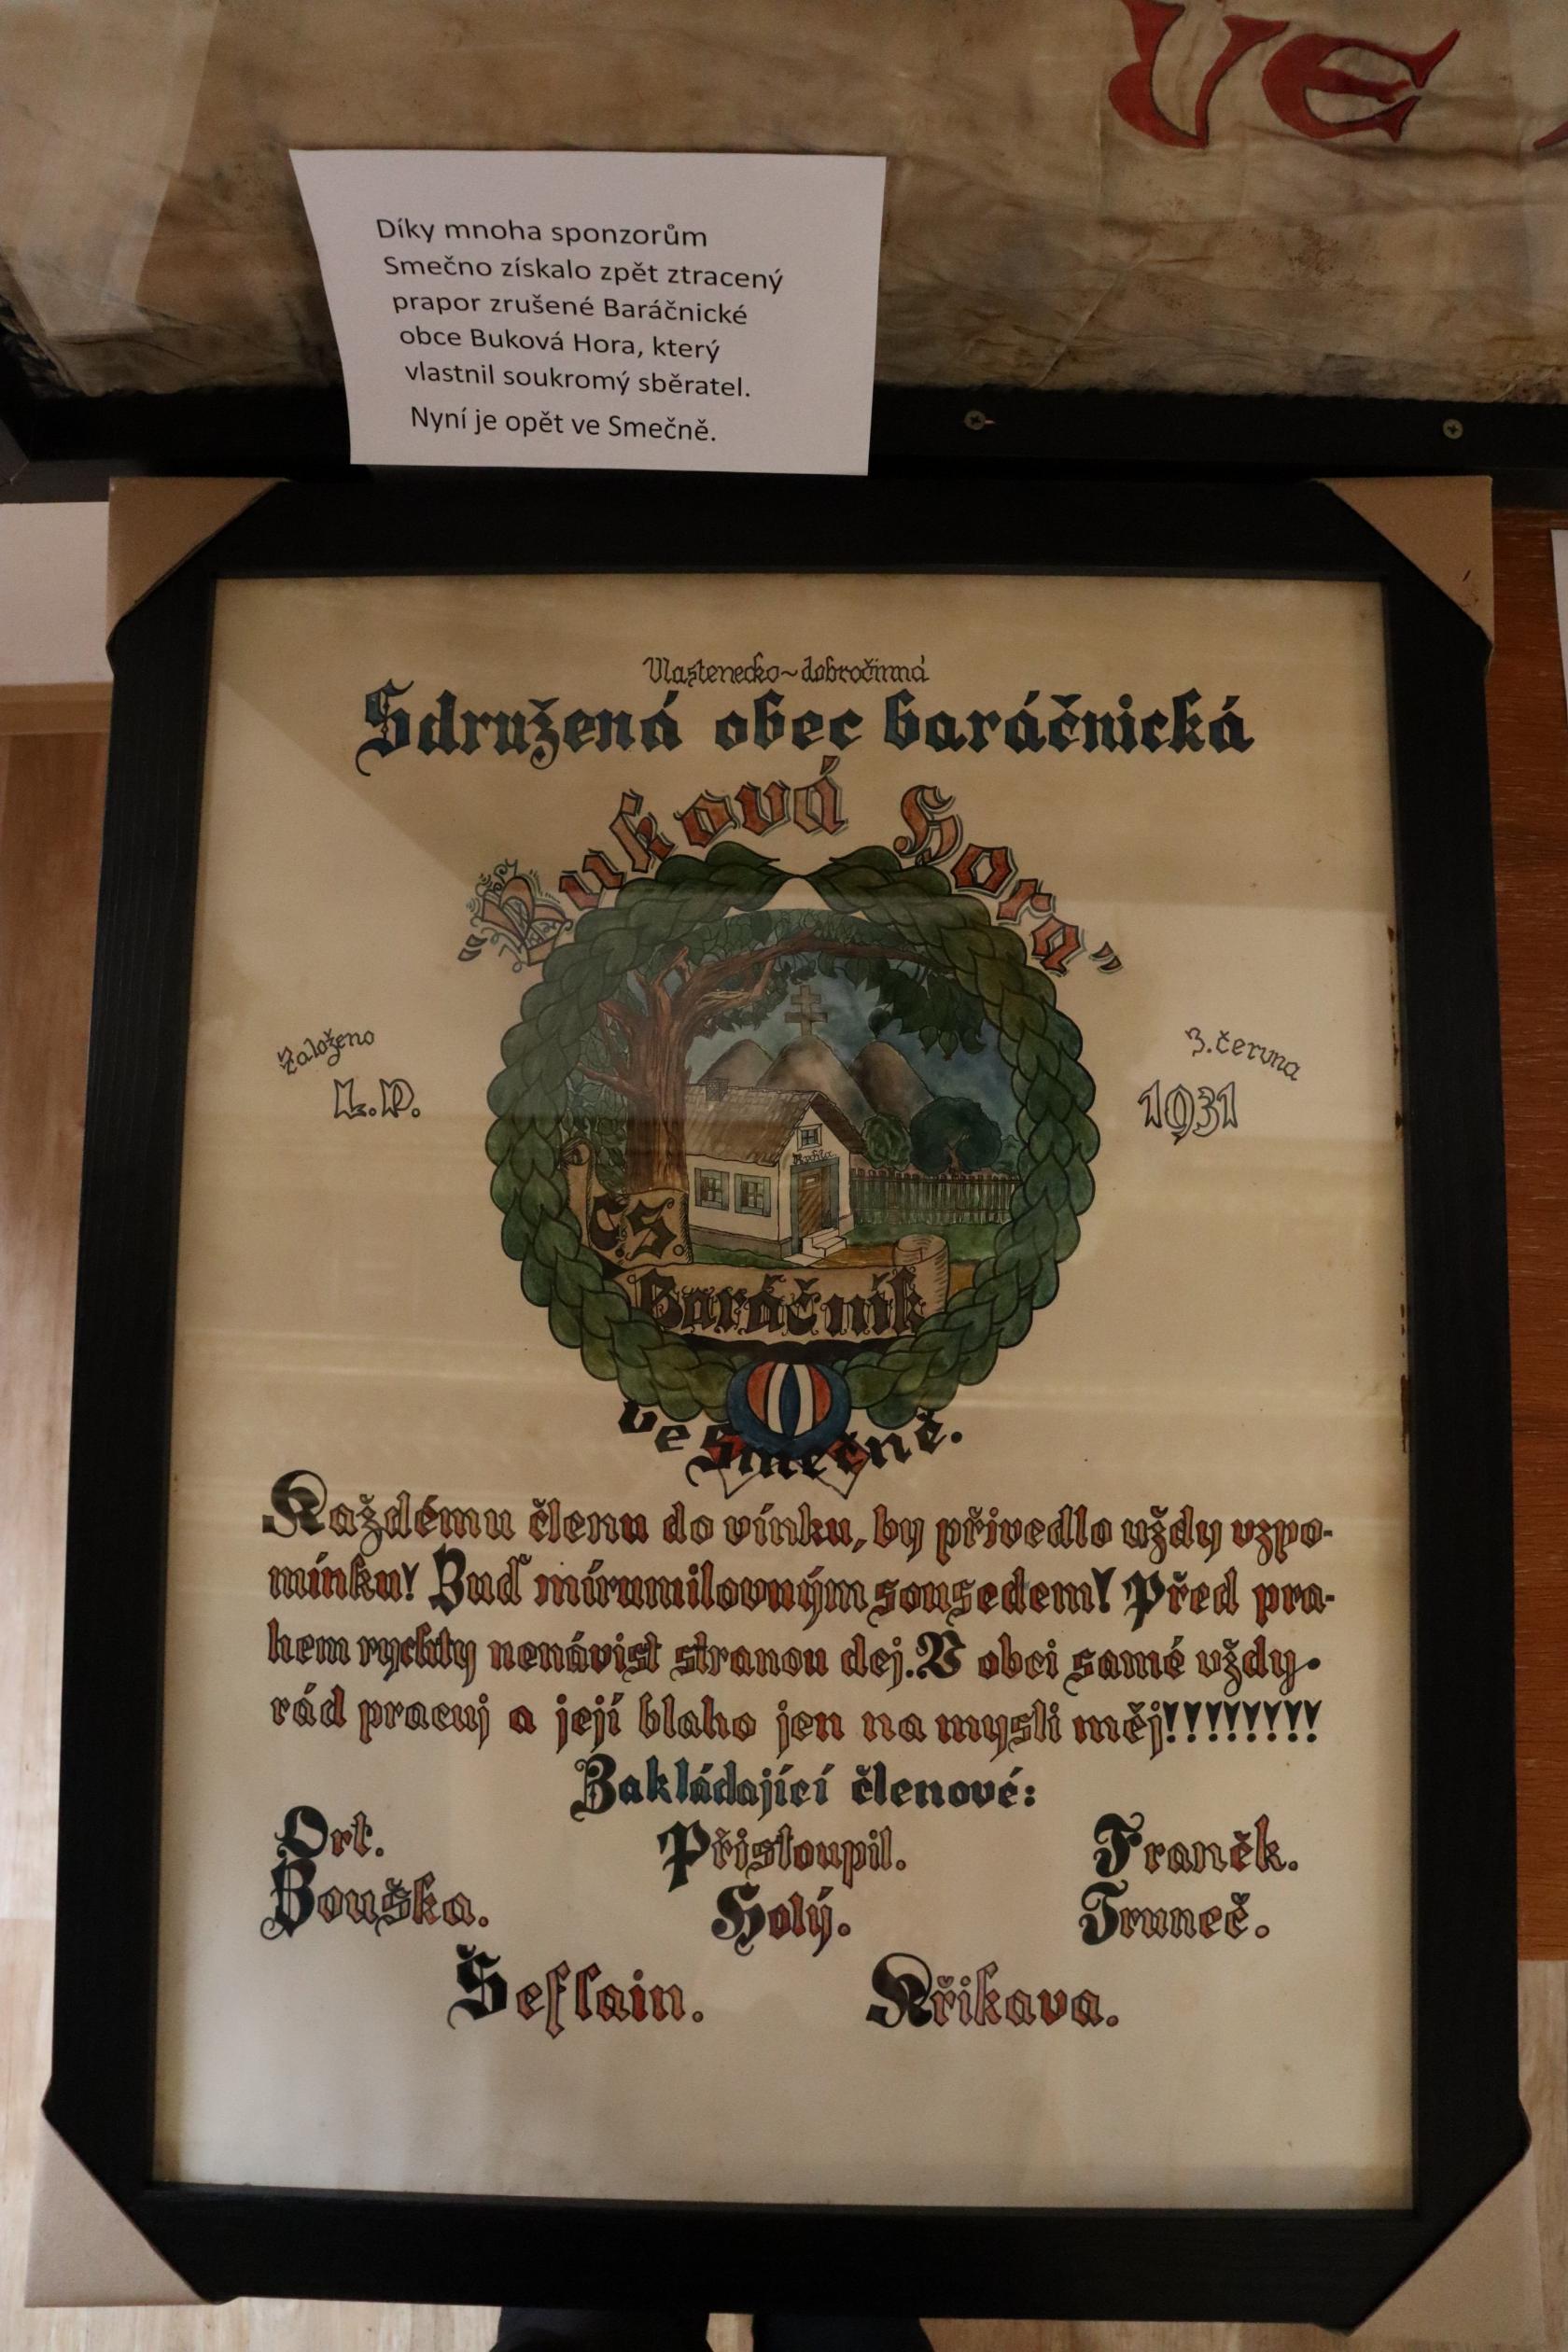 VE
Díky mnoha sponzorům
Smečno získalo zpět ztracený
prapor zrušené Baráčnické
obce Buková Hora, který
vlastnil soukromý sběratel.
Nyní je opět ve Smečně.
Vlastenecko~dobročinná
Sdružená obec baráčnická
"Buková Hora"
Založeno
L.P.
3. června
1931
Rychta
ČS
Baráčník
ve Smečně.
Každému členu do vínku, by přivedlo vždy vzpo-
mínku! Buď mírumilovným sousedem! Před pra-
hem rychty nenávist stranou dej. V obci samé vždy
rád pracuj a její blaho jen na mysli měj!!!!!!!!
Zakládající členové:
Ort. Přistoupil. Franěk.
Bouška. Holý. Truneč.
Křikava.